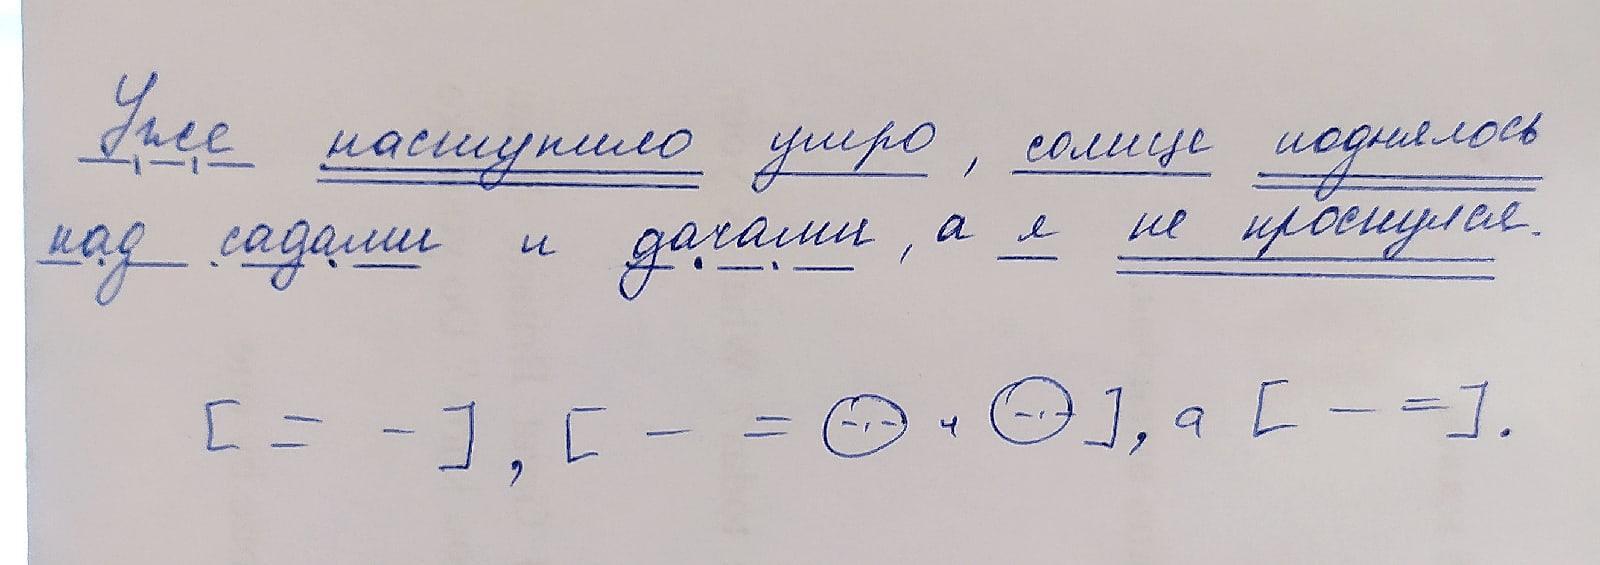 Уже наступило утро, солнце поднялось
над садами и дачами, а я не проснулся.
[= -], [- = и ], а [- =].